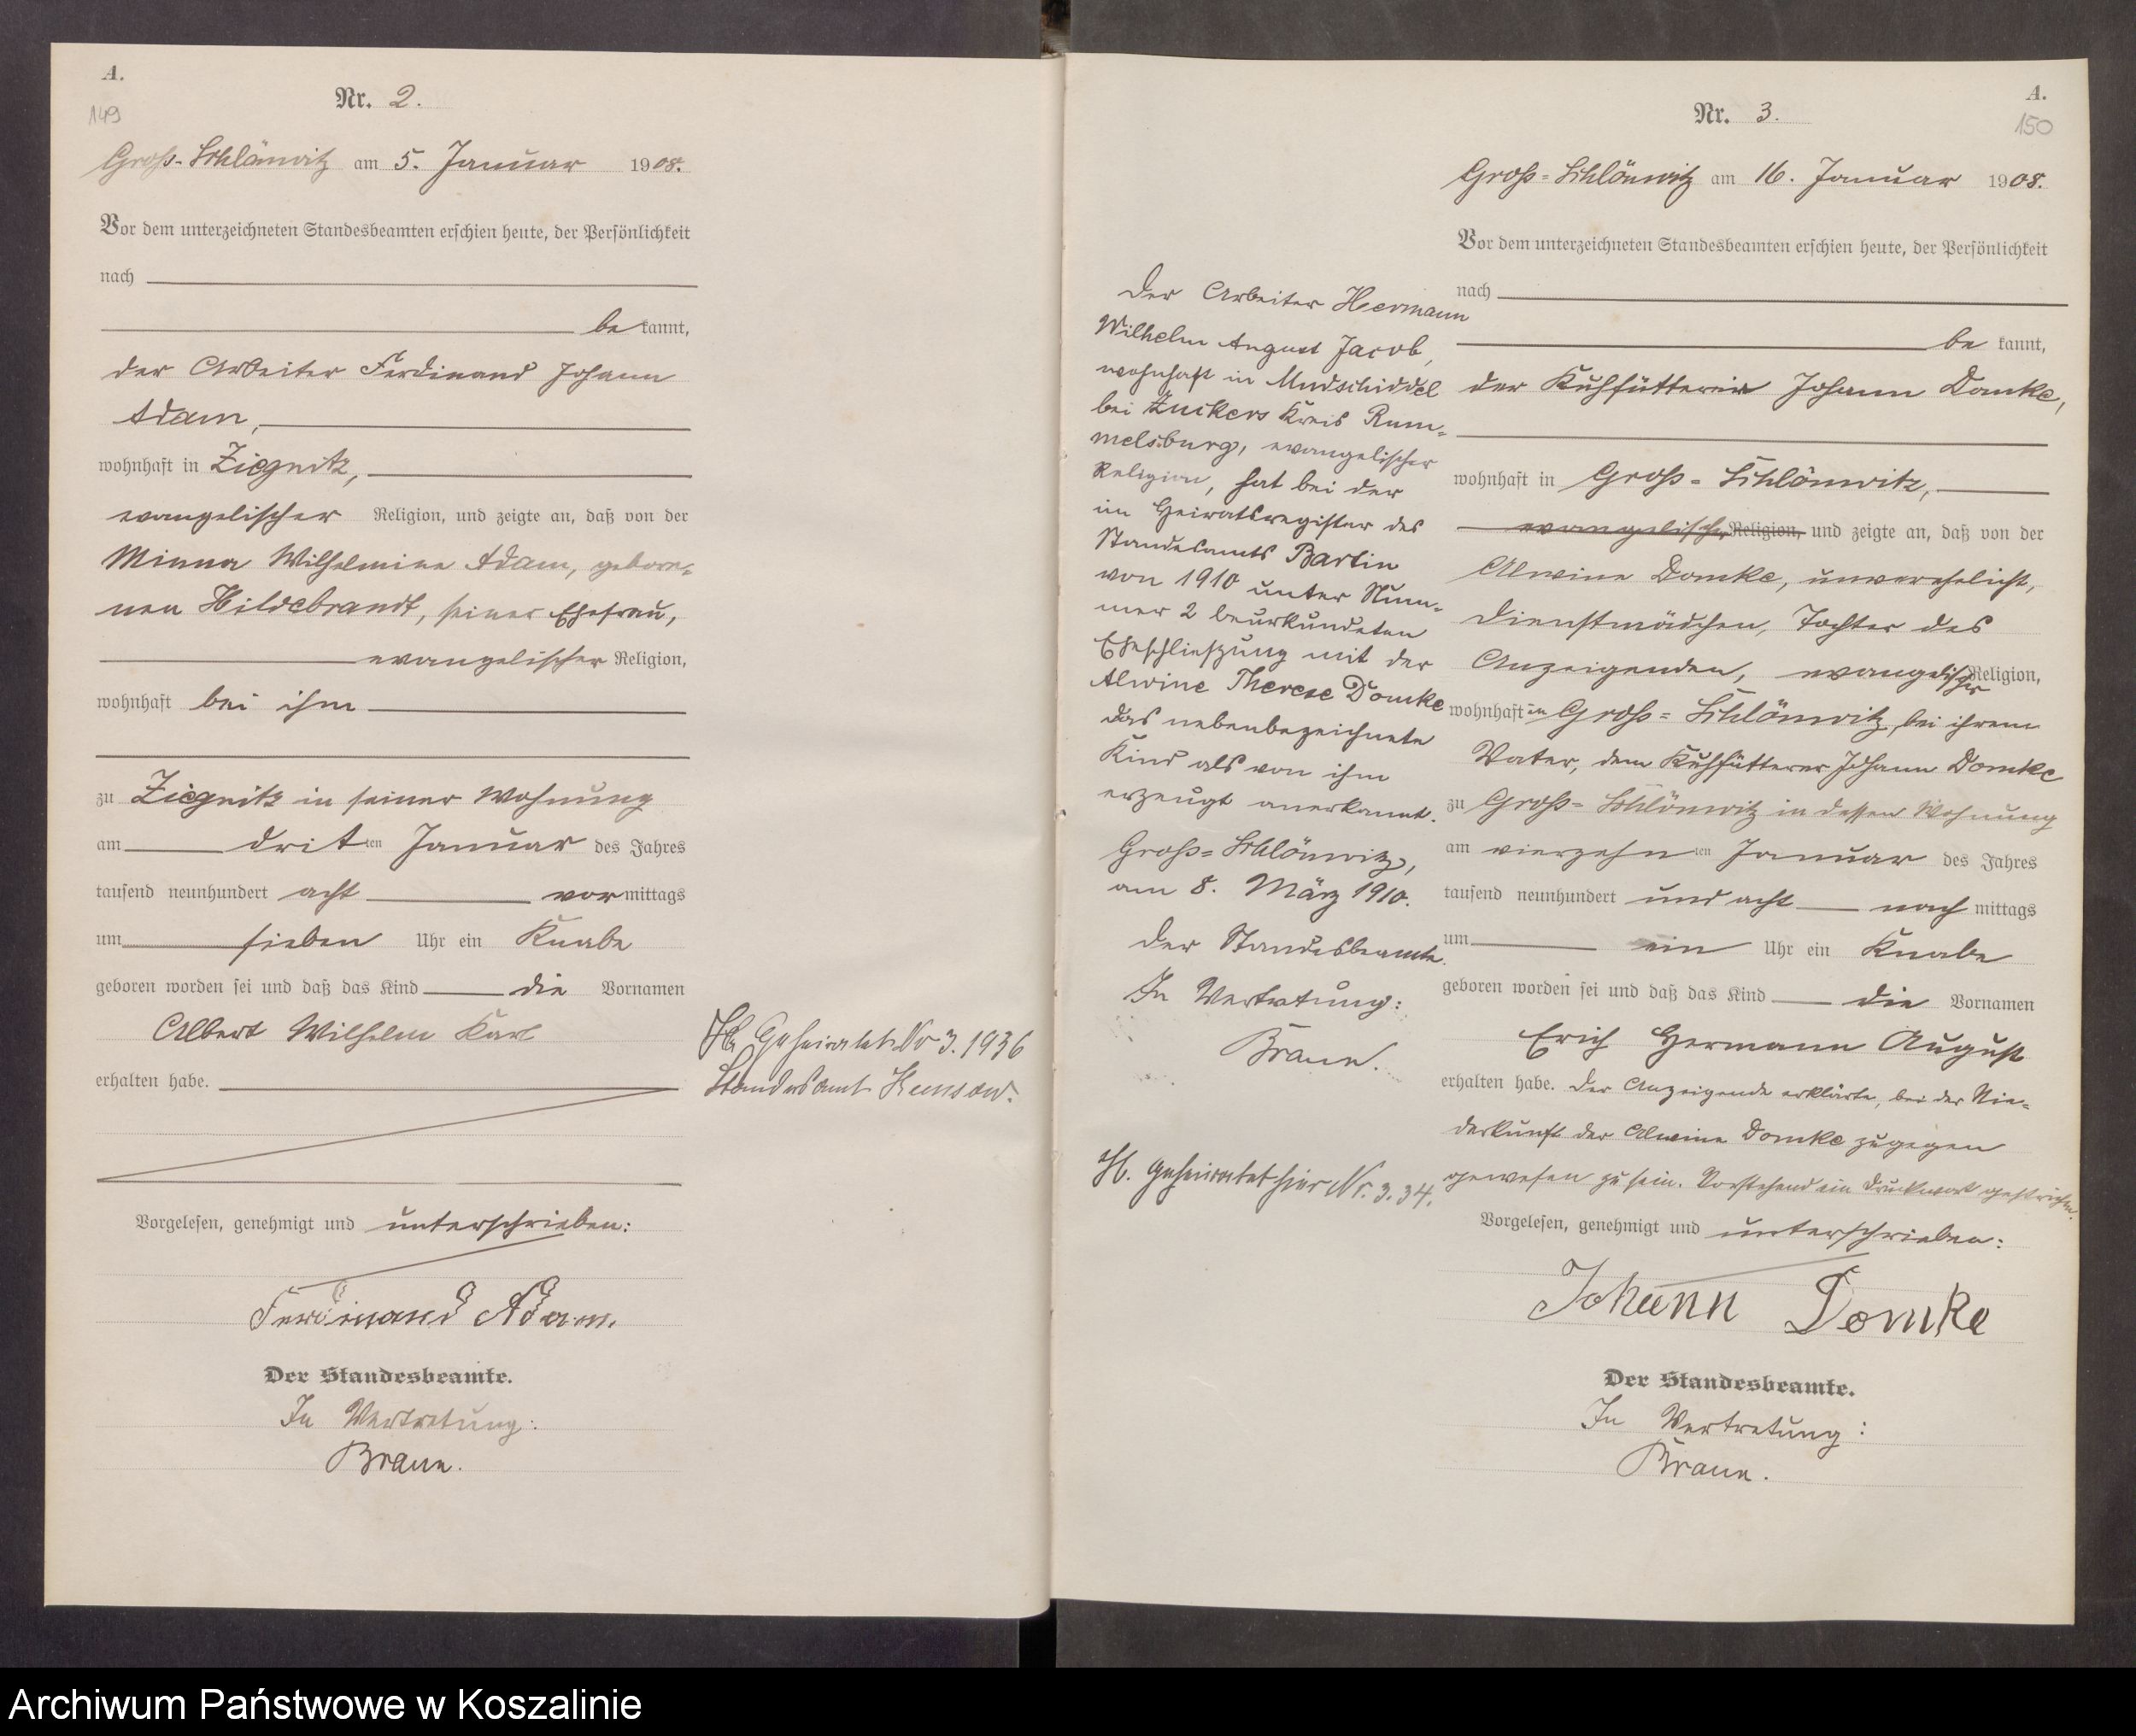 A.
149
Nr. 2.
Groß-Schlönwitz am 5. Januar 1908.
Vor dem unterzeichneten Standesbeamten erschien heute, der Persönlichkeit
nach
be kannt,
der Arbeiter Ferdinand Johann
Adam,
wohnhaft in Ziegnitz,
evangelischer Religion, und zeigte an, daß von der
Minna Wilhelmine Adam, gebore-
nen Hildebrandt, seiner Ehefrau,
evangelischer Religion,
wohnhaft bei ihm
zu Ziegnitz in seiner Wohnung
am dritten Januar des Jahres
tausend neunhundert acht vormittags
um sieben Uhr ein Knabe
geboren worden sei und daß das Kind die Vornamen
Albert Wilhelm Karl
erhalten habe.
Vorgelesen, genehmigt und unterschrieben:
Ferdinand Adam.
Der Standesbeamte.
In Vertretung:
Braun.
Geheiratet Nr 3. 1936
Standesamt
A.
150
Nr. 3.
Groß-Schlönwitz am 16. Januar 1908.
Vor dem unterzeichneten Standesbeamten erschien heute, der Persönlichkeit
nach
be kannt,
der Kuhfütterer Johann Domke,
wohnhaft in Groß-Schlönwitz,
evangelischer Religion, und zeigte an, daß von der
Alwine Domke, unverehelicht,
Dienstmädchen, Tochter des
Anzeigenden, evangelischer Religion,
wohnhaft in Groß-Schlönwitz, bei ihrem
Vater, dem Kuhfütterer Johann Domke
zu Groß-Schlönwitz in dessen Wohnung
am vierzehnten Januar des Jahres
tausend neunhundert und acht nachmittags
um ein Uhr ein Knabe
geboren worden sei und daß das Kind die Vornamen
Erich Hermann August
erhalten habe. Der Anzeigende erklärte, bei der Nie-
derkunft der Alwine Domke zugegen
gewesen zu sein. Vorstehend ein Druckwort gestrichen.
Vorgelesen, genehmigt und unterschrieben:
Johann Domke
Der Standesbeamte.
In Vertretung:
Braun.
Der Arbeiter Hermann
Wilhelm August Jacob,
wohnhaft in Mudschiddel
bei Zuckers Kreis Rum-
melsburg, evangelischer
Religion, hat bei der
im Heiratsregister des
Standesamts Bartin
von 1910 unter Num-
mer 2 beurkundeten
Eheschließung mit der
Alwine Therese Domke
das nebenbezeichnete
Kind als von ihm
erzeugt anerkannt.
Groß-Schlönwitz,
am 8. März 1910.
Der Standesbeamte.
In Vertretung:
Braun.
H. Geheiratet hier Nr. 3. 34.
Archiwum Państwowe w Koszalinie